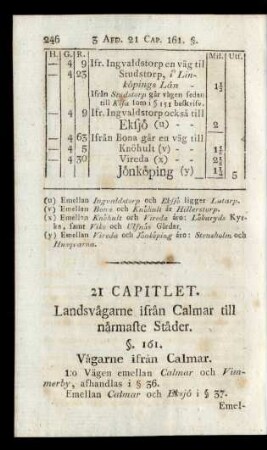 246 3 AFD. 21 CAP. 161. §.
H. G. R. Mil. Utf.
— 4 9 Ifr. Ingvaldstorp en väg til
— 4 23 Studstorp, i Lin-
köpings Län - 1½
Ifrån Studstorp går vägen sedan
till Kisa som i § 151 beskrifs.
— 4 9 Ifr. Ingvaldstorp också till
Eksjö (u) - 2
— 4 63 Ifrån Bona går en väg till
— 4 5 Knöhult (v) - - 1½
— 4 30 Vireda (x) - - 2½
Jönköping (y) 1½ 5
(u) Emellan Ingvaldstorp och Eksjö ligger Lutarp.
(v) Emellan Bona och Knöhult är Hillerstorp.
(x) Emellan Knöhult och Vireda äro: Låkaryds Kyr-
ka, samt Viks och Ulfnäs Gårder.
(y) Emellan Vireda och Jönköping äro: Stensholm och
Husqvarna.
21 CAPITLET.
Landsvägarne ifrån Calmar till
närmaste Städer.
§. 161.
Vägarne ifrån Calmar.
1:o Vägen emellan Calmar och Vim-
merby, afhandlas i § 36.
Emellan Calmar och Eksjö i § 37.
Emel-